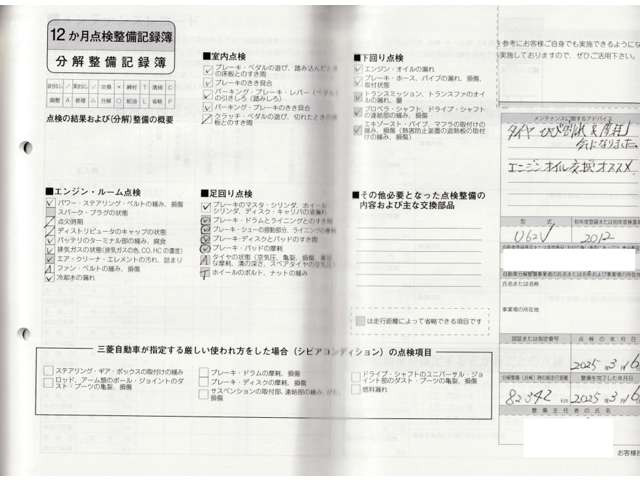 12か月点検整備記録簿
分解整備記録簿
点検の結果及び(分解)整備の概要
■室内点検
ブレーキ・ペダルの遊び、踏み込んだとき
の床板とのすき間
ブレーキのきき具合
パーキング・ブレーキ・レバー（ペダル）
の引きしろ（踏みしろ）
パーキング・ブレーキのきき具合
クラッチ・ペダルの遊び、切れたときの
床板とのすき間
■下回り点検
エンジン・オイルの漏れ
ブレーキ・ホース、パイプの漏れ、損傷、
取付状態
トランスミッション、トランスファのオイ
ルの漏れ、量
プロペラ・シャフト、ドライブ・シャフト
の連結部の緩み、損傷
エキゾースト・パイプ、マフラの取付けの
緩み、損傷（熱害防止装置の遮熱板の取付
けの緩み、損傷）
を参考にお客様ご自身でも実施できるように
実施しておりますので、ぜひご活用下さい。
メンテナンスに関するアドバイス
タイヤ ひび割れ 気になりました。
エンジンオイル交換オススメ
■エンジン・ルーム点検
パワー・ステアリング・ベルトの緩み、損傷
スパーク・プラグの状態
点火時期
ディストリビュータのキャップの状態
バッテリのターミナル部の緩み、腐食
排気ガスの状態(排気ガスの色、CO、HCの濃度)
エア・クリーナ・エレメントの汚れ、詰まり
ファン・ベルトの緩み、損傷
冷却水の漏れ
■足回り点検
ブレーキのマスタ・シリンダ、ホイール・
シリンダ、ディスク・キャリパの液漏れ
ブレーキ・ドラムとライニングとのすき間
ブレーキ・シューの摺動部分、ライニングの摩耗
ブレーキ・ディスクとパッドのすき間
ブレーキ・パッドの摩耗
タイヤの状態（空気圧、亀裂、損傷、異常
な摩耗、溝の深さ、スペアタイヤの空気圧）
ホイールのボルト、ナットの緩み
■その他必要となった点検整備の
内容および主な交換部品
は走行距離によって省略できる項目です
型式
U62V
2012
氏名または名称
事業場の所在地
認証または指定番号
点検の年月日
2025年3月16
整備を完了した年月日
82342 km
2025年3月16
整備主任者の氏名
三菱自動車が指定する厳しい使われ方をした場合（シビアコンディション）の点検項目
ステアリング・ギア・ボックスの取付けの緩み
ロッド、アーム類のボール・ジョイントのダ
スト・ブーツの亀裂、損傷
ブレーキ・ドラムの摩耗、損傷
ブレーキ・ディスクの摩耗、損傷
サスペンションの取付部、連結部の緩み、がた、
損傷
ドライブ・シャフトのユニバーサル・ジョ
イント部のダスト・ブーツの亀裂、損傷
燃料漏れ